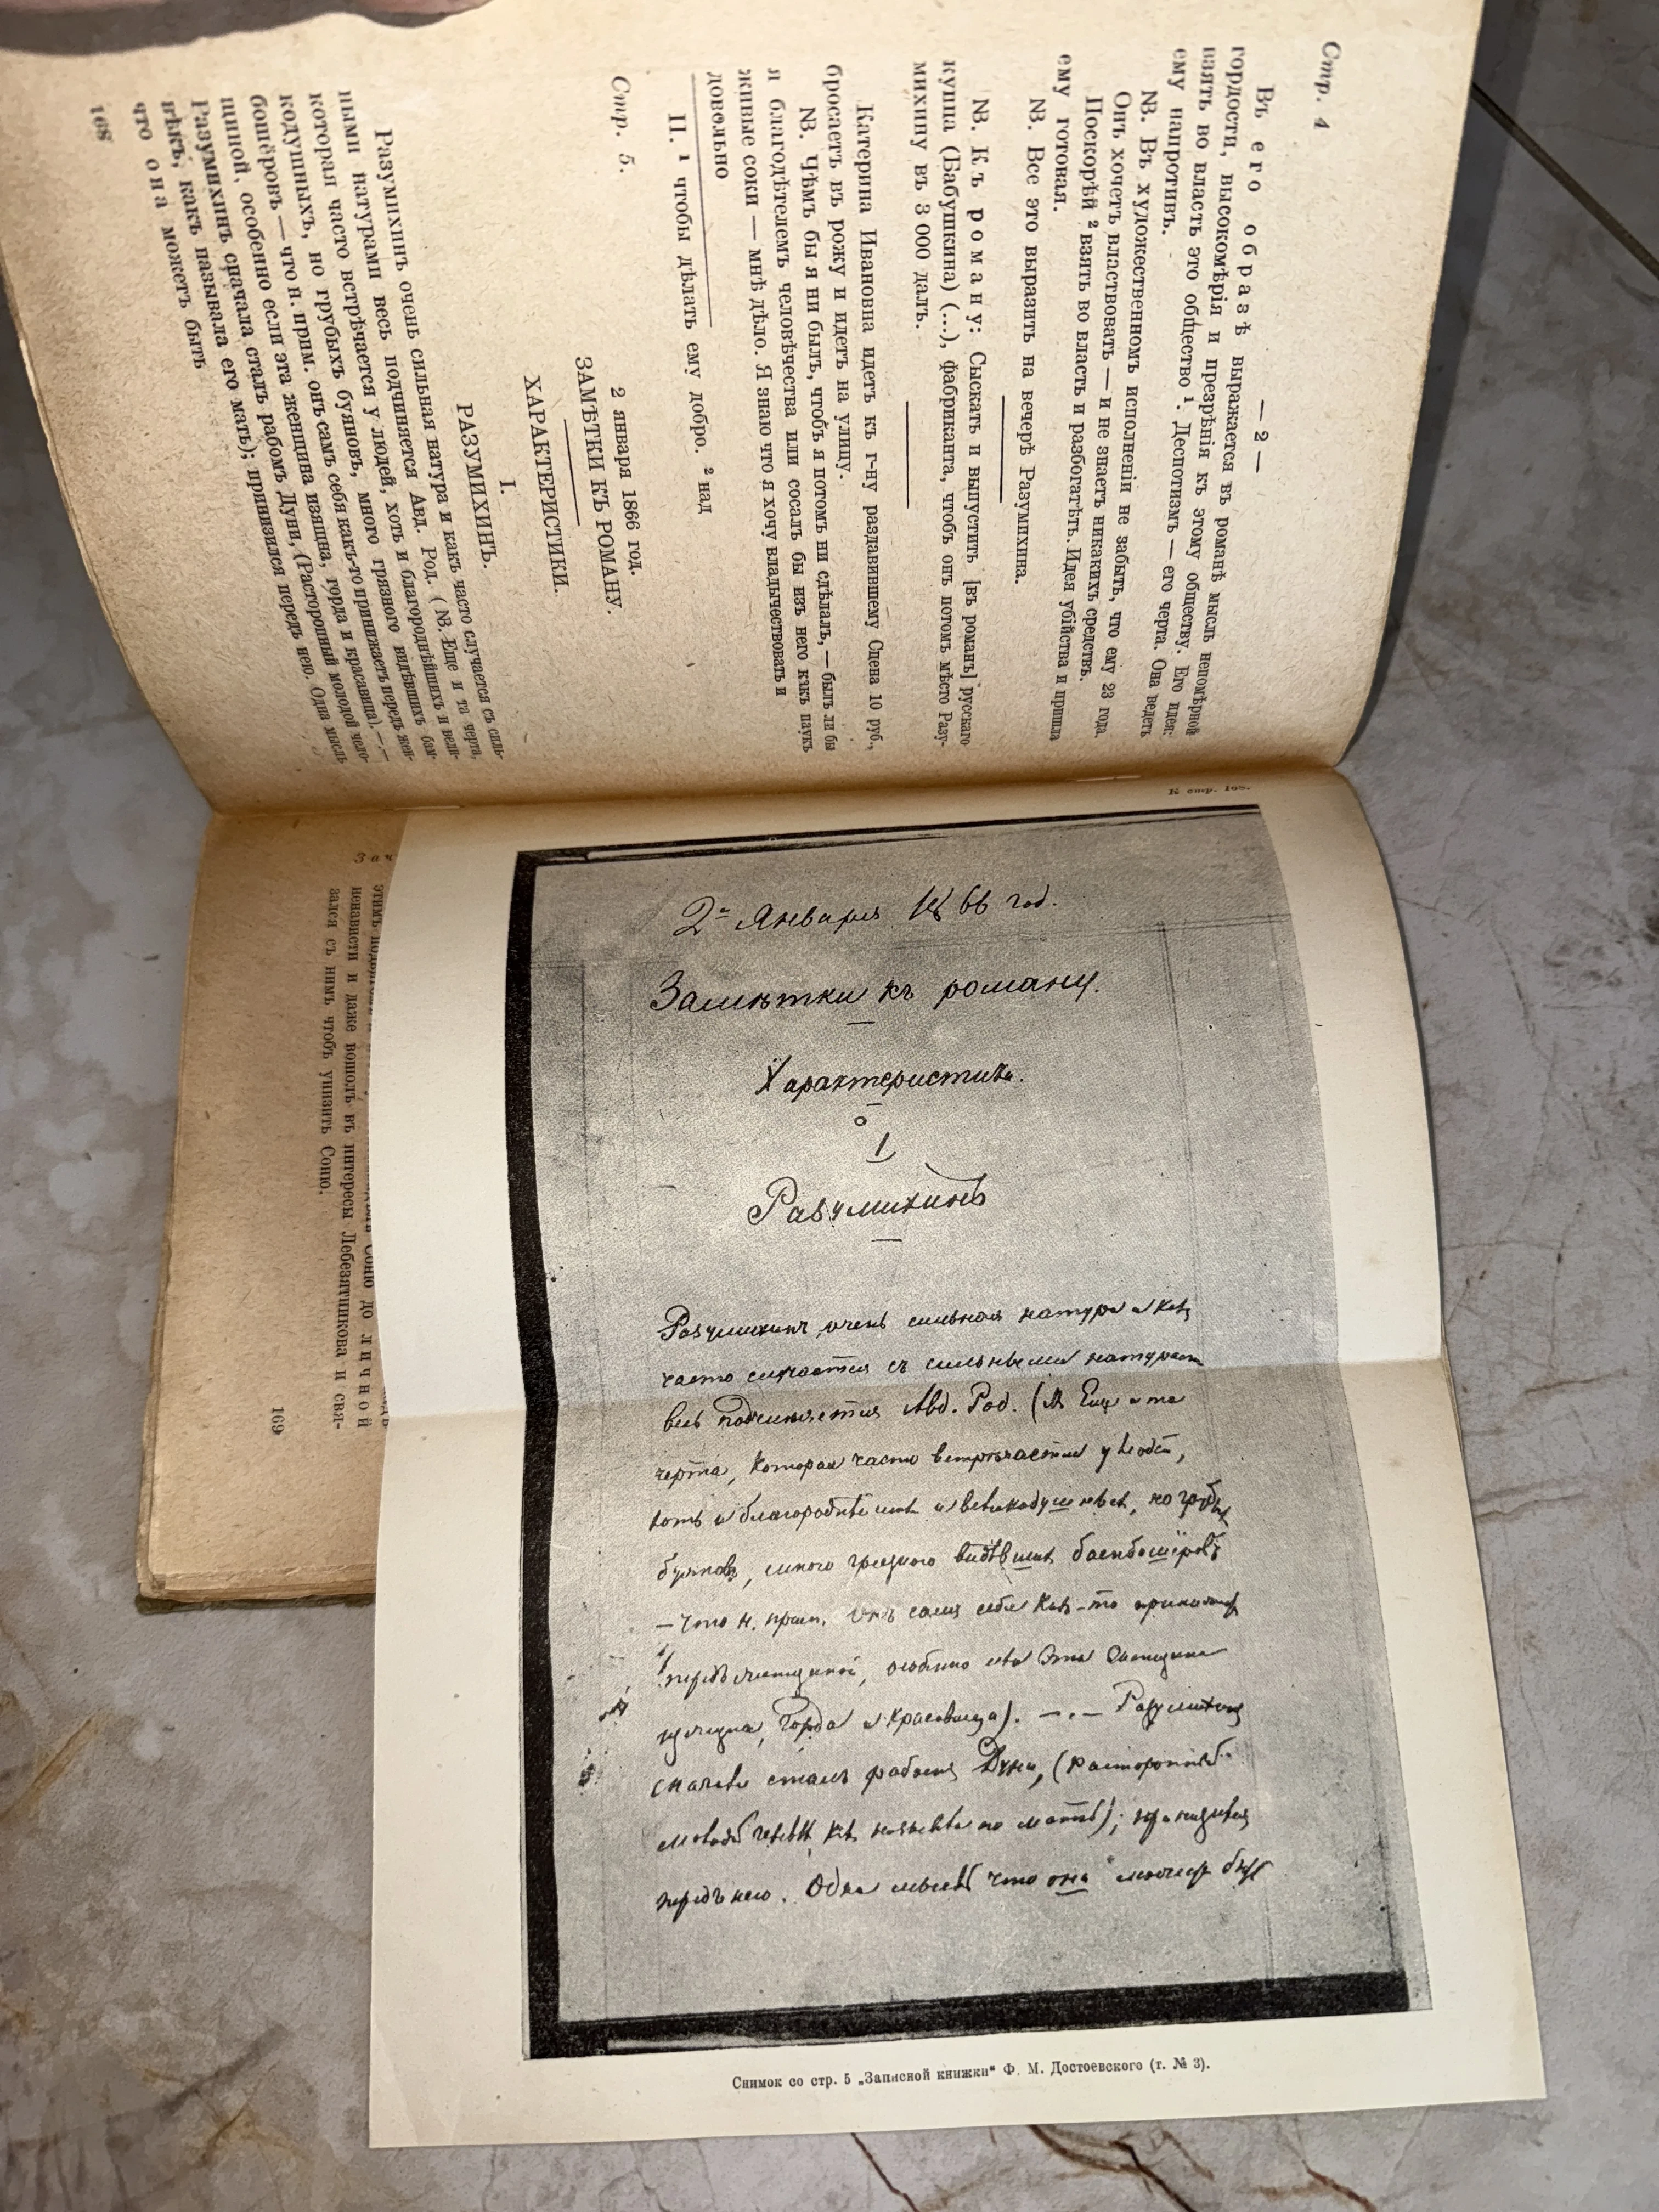 Стр. 4
— 2 —
Въ его образѣ выражается въ романѣ мысль непомѣрной
гордости, высокомѣрія и презрѣнія къ этому обществу. Его идея:
взять во власть это общество ¹. Деспотизмъ — его черта. Она ведетъ
ему напротивъ.
NB. Въ художественномъ исполненіи не забыть, что ему 23 года.
Онъ хочетъ властвовать — и не знаетъ никакихъ средствъ.
Поскорѣй ² взять во власть и разбогатѣть. Идея убійства и пришла
ему готовая.
NB. Все это выразить на вечерѣ Разумихина.
NB. Къ роману: Сыскать и выпустить [въ романъ] рускаго
купца (Бабушкина) (...), фабриканта, чтобъ онъ потомъ мѣсто Разу-
михину въ 3 000 далъ.
Катерина Ивановна идетъ къ г-ну раздавившему Сцена 10 руб.,
бросаетъ въ рожу и идетъ на улицу.
NB. Чѣмъ бы я ни былъ, чтобъ я потомъ ни сдѣлалъ, — былъ ли бы
я благодѣтелемъ человѣчества или сосалъ бы изъ него какъ паукъ
живые соки — мнѣ дѣло. Я знаю что я хочу владычествовать и
довольно
II. ¹ чтобы дѣлать ему добро. ² над
Стр. 5.
2 января 1866 год.
ЗАМѢТКИ КЪ РОМАНУ.
ХАРАКТЕРИСТИКИ.
I.
РАЗУМИХИНЪ.
Разумихинъ очень сильная натура и какъ часто случается съ силь-
ными натурами весь подчиняется Авд. Род. (NB. Еще и та черта,
которая часто встрѣчается у людей, хоть и благороднѣйшихъ и вели-
кодушныхъ, но грубыхъ буяновъ, много грязного видѣвшихъ бам-
бошёровъ — что н. прим. онъ самъ себя какъ-то принижаетъ передъ жен-
щиной, особенно если эта женщина изящна, горда и красавица). —.—
Разумихинъ сначала сталъ рабомъ Дуни, (Расторопный молодой чело-
вѣкъ, какъ называла его мать); принизился передъ нею. Одна мысль
что она можетъ быть
168
К стр. 168.
2го Января 1866 год.
Замѣтки къ роману.
Характеристики.
1
Разумихинъ
Разумихинъ очень сильная натура и какъ
часто случается съ сильными натурами
весь подчиняется Авд. Род. (NB Еще и та
черта, которая часто встрѣчается у людей,
хоть и благороднѣйшихъ и великодушныхъ, но грубыхъ
буяновъ, много грязного видѣвшихъ бамбошёровъ
— что н. прим. онъ самъ себя какъ-то принижаетъ
передъ женщиной, особенно если эта женщина
изящна, горда и красавица). —.— Разумихинъ
сначала сталъ рабомъ Дуни, (расторопный
молодой человѣкъ, какъ называла его мать); принизился
передъ нею. Одна мысль что она можетъ быть
Снимок со стр. 5 „Записной книжки“ Ф. М. Достоевского (т. № 3).
Соню до личной
ненависти и даже вошолъ въ интересы Лебезятникова и свя-
зался съ нимъ чтобъ унизить Соню.
169